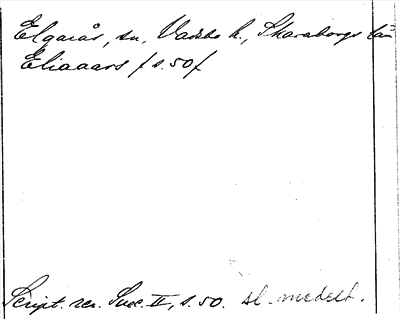 Elgarås, sn, Vadsbo h., Skaraborgs län
Eliaaars f s. 50 f
Script. rer. Suec. II, s. 50. sl. medelt.